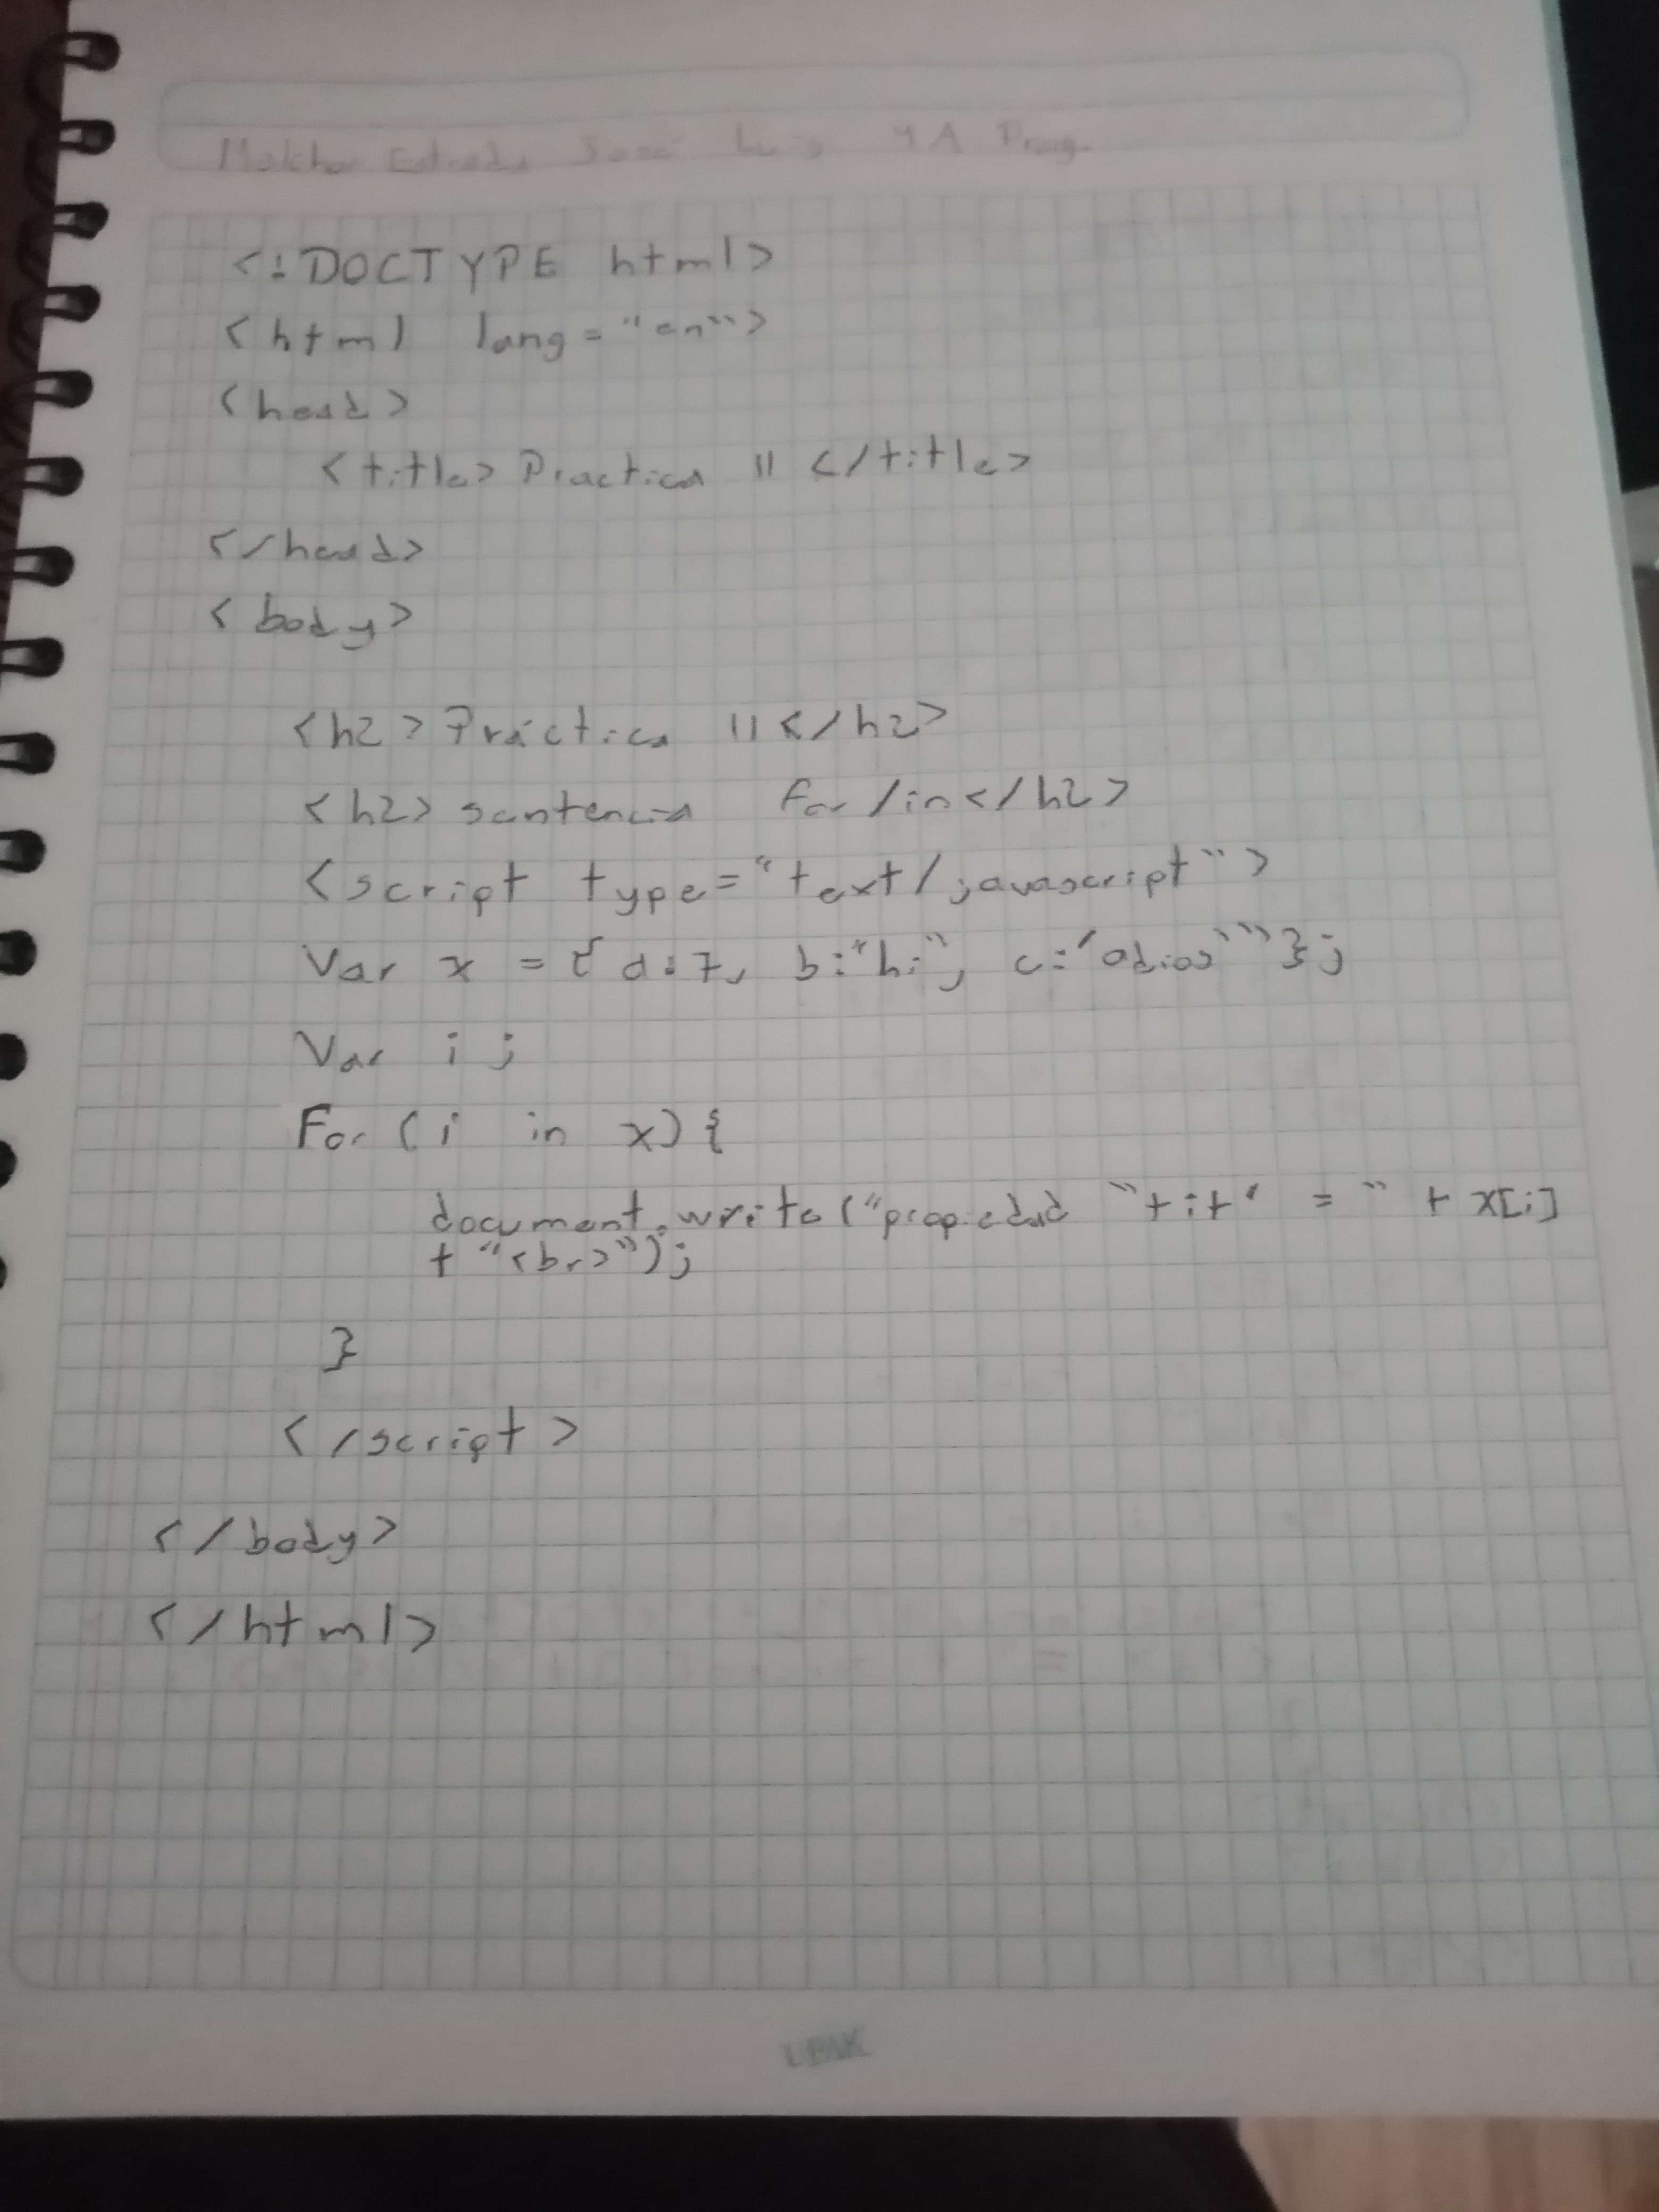 Melchor Estrada José Luis 4A Prog.
<!DOCTYPE html>
<html lang="en">
<head>
<title> Practica 11 </title>
</head>
<body>
<h2> Práctica 11 </h2>
<h2> sentencia for/in </h2>
<script type="text/javascript">
Var x = { a:7, b:"hi", c:'adios'"" };
Var i;
For (i in x) {
document.write("propiedad "+i+' = " + x[i]
+ "<br>");
}
</script>
</body>
</html>